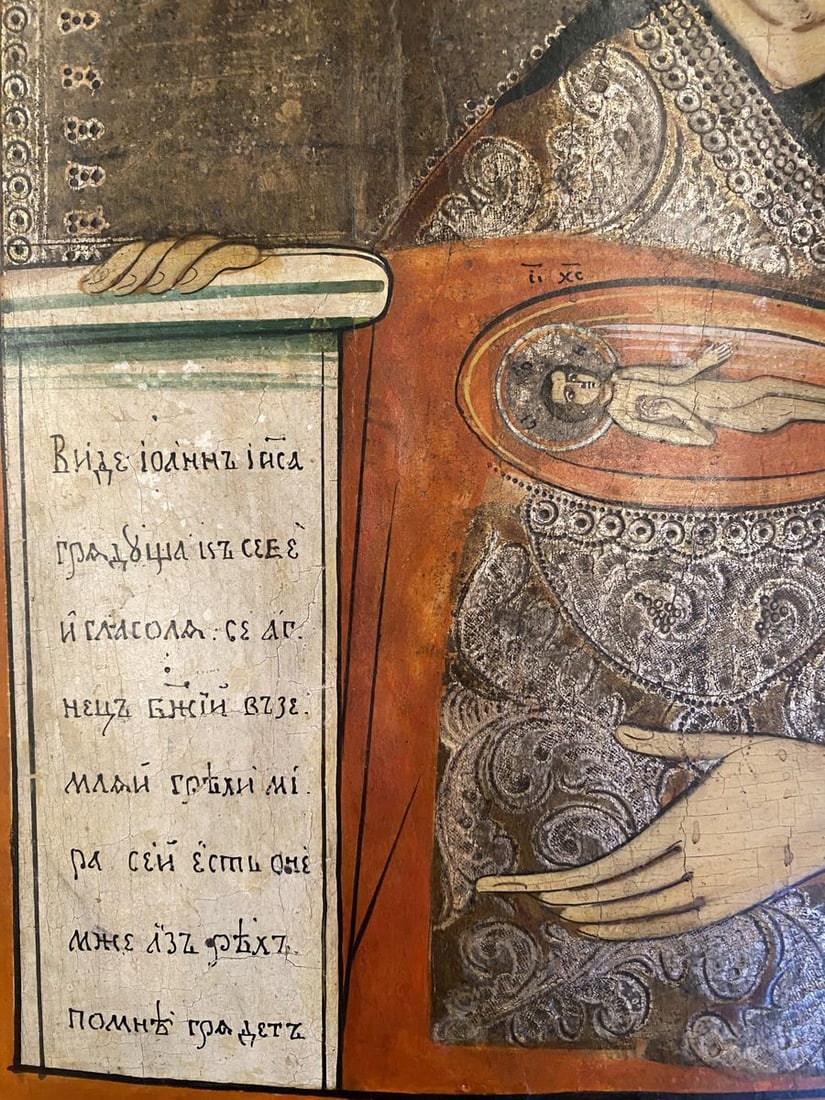 І҃І Х҃С
Ви́де їѡа́ннъ і҆и҃са
грѧдꙋща къ себѐ
и҆ гл҃асолѧ: се а҆́г.
нецъ бж҃їй въ зе.
млѧй грѣхи мі.
ра се́й є҆́сть ѻнѐ
мже а҆́зъ рѣ́хъ
по мнѣ̀ грѧдетъ